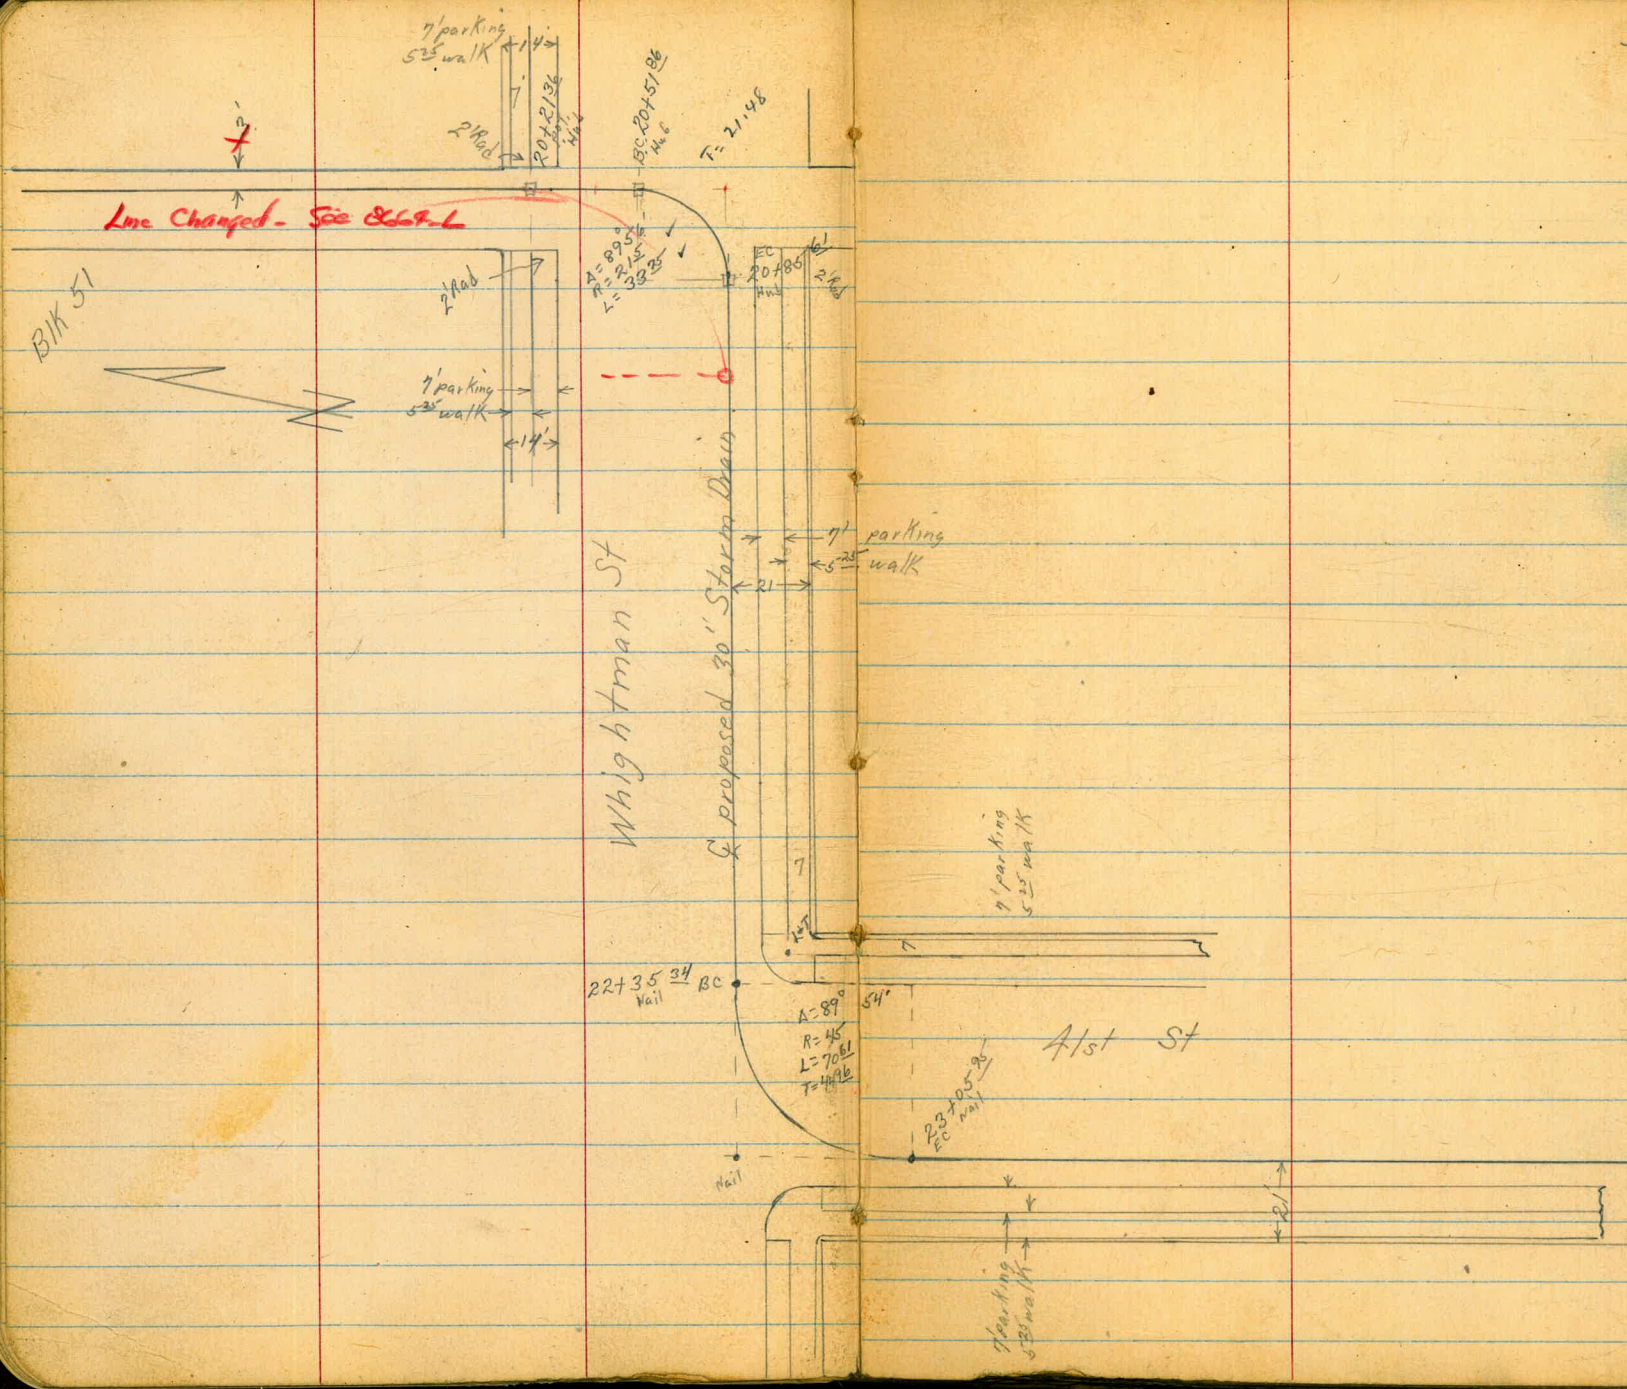 7' parking
5 25 walk
14'
7'
2' Rad
20+21 36
Hub
BC 20+51 86
Hub
T= 21.48
3'
Line Changed - See
Blk 51
2' Rad
Δ= 89° 56
R= 21 5
L= 33 75
EC
20+85 61
Hub
2' Rad
7' parking
5 25 walk
14'
7' parking
5 25 walk
21
Whightman St
℄ proposed 30" Storm Drain
7
7' parking
5 25 walk
7
22+35 34 BC
Nail
Δ= 89° 54'
R= 45
L= 70 61
T= 44 96
41st St
23+05 95
EC Nail
Nail
21'
7' parking
5 25 walk